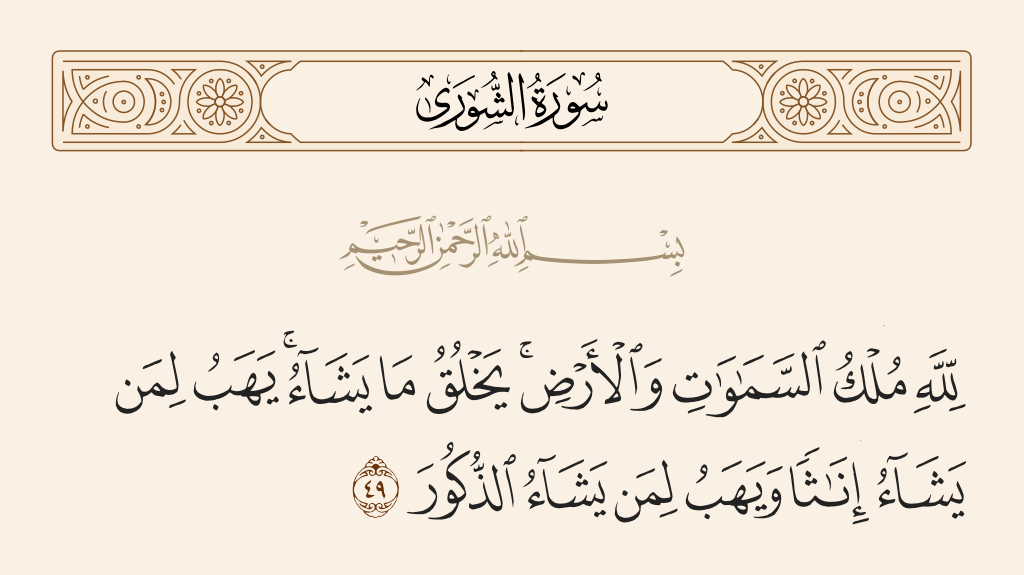 سُورَةُ الشُّورَىٰ
بِسْمِ ٱللَّهِ ٱلرَّحْمَٰنِ ٱلرَّحِيمِ
لِلَّهِ مُلْكُ ٱلسَّمَٰوَٰتِ وَٱلْأَرْضِ ۚ يَخْلُقُ مَا يَشَآءُ ۚ يَهَبُ لِمَن
يَشَآءُ إِنَٰثًا وَيَهَبُ لِمَن يَشَآءُ ٱلذُّكُورَ ٤٩